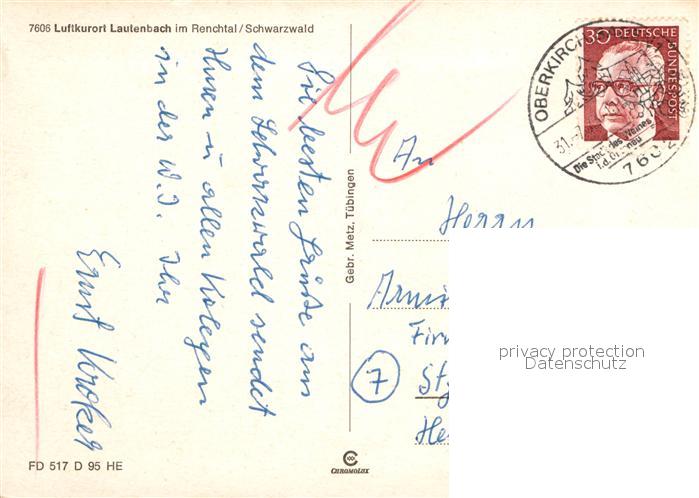 7606 Luftkurort Lautenbach im Renchtal/Schwarzwald
Die besten Grüße aus
dem Schwarzwald sendet
Ihnen u allen Kolegen
in der W.I. Ihr
Ernst Kroker
FD 517 D 95 HE
Gebr. Metz, Tübingen
CHROMOLUX
30 DEUTSCHE BUNDESPOST
OBERKIRCH
31.-7.
Die Stadt des Weines
i.d. Ortenau
7602
An
Herrn
Armi
Firm
7 St
He
privacy protection
Datenschutz